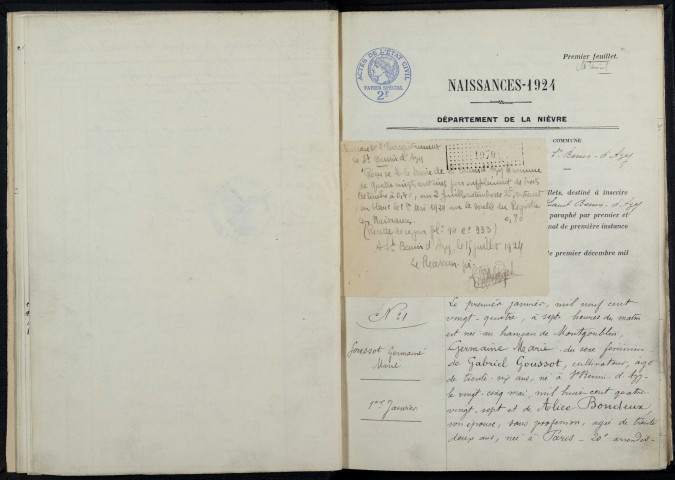 Premier feuillet.
ACTES DE L'ÉTAT CIVIL
PAPIER SPÉCIAL
2F
NAISSANCES-1924
DÉPARTEMENT DE LA NIÈVRE
COMMUNE
St Benin-d'Azy
llets, destiné à inscrire
Saint Benin-d'Azy
paraphé par premier et
nal de première instance
le premier décembre mil
de St Benin d'Azy
1970
de quatre vingt centimes pour supplément de droits
de timbre à 0,40, sur 2 feuilles
en blanc le 1er Mai 1924 sur le
des Naissances 0,80
A St Benin d'Azy, le 15 juillet 1924
Le Receveur
N° 1
Goussot Germaine
Marie
1er Janvier
Le premier janvier, mil neuf cent
vingt-quatre, à sept heures du matin
est née au hameau de Montgoublin,
Germaine Marie du sexe féminin
de Gabriel Goussot, cultivateur, âgé
de trente-six ans, né à St Benin-d'Azy
le vingt-cinq mai, mil huit cent quatre
vingt, sept et de Alice Bondeux,
son épouse, sans profession, âgée de trente
deux ans, née à Paris-20e arrondis-